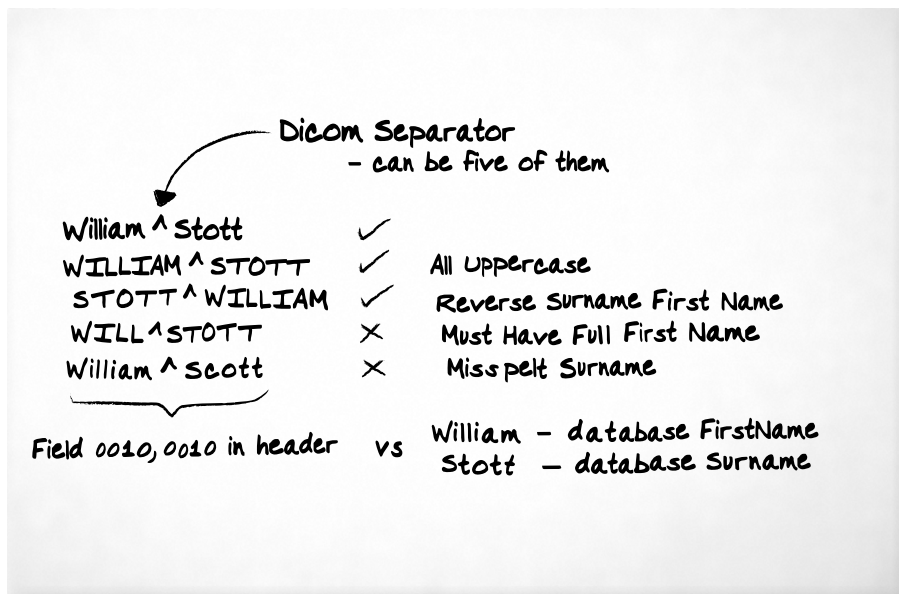 Dicom Separator
- can be five of them
William ^ Stott ✓
WILLIAM ^ STOTT ✓ All Uppercase
STOTT ^ WILLIAM ✓ Reverse Surname First Name
WILL ^ STOTT ✗ Must Have Full First Name
William ^ Scott ✗ Misspelt Surname
Field 0010,0010 in header vs
William - database FirstName
Stott - database Surname